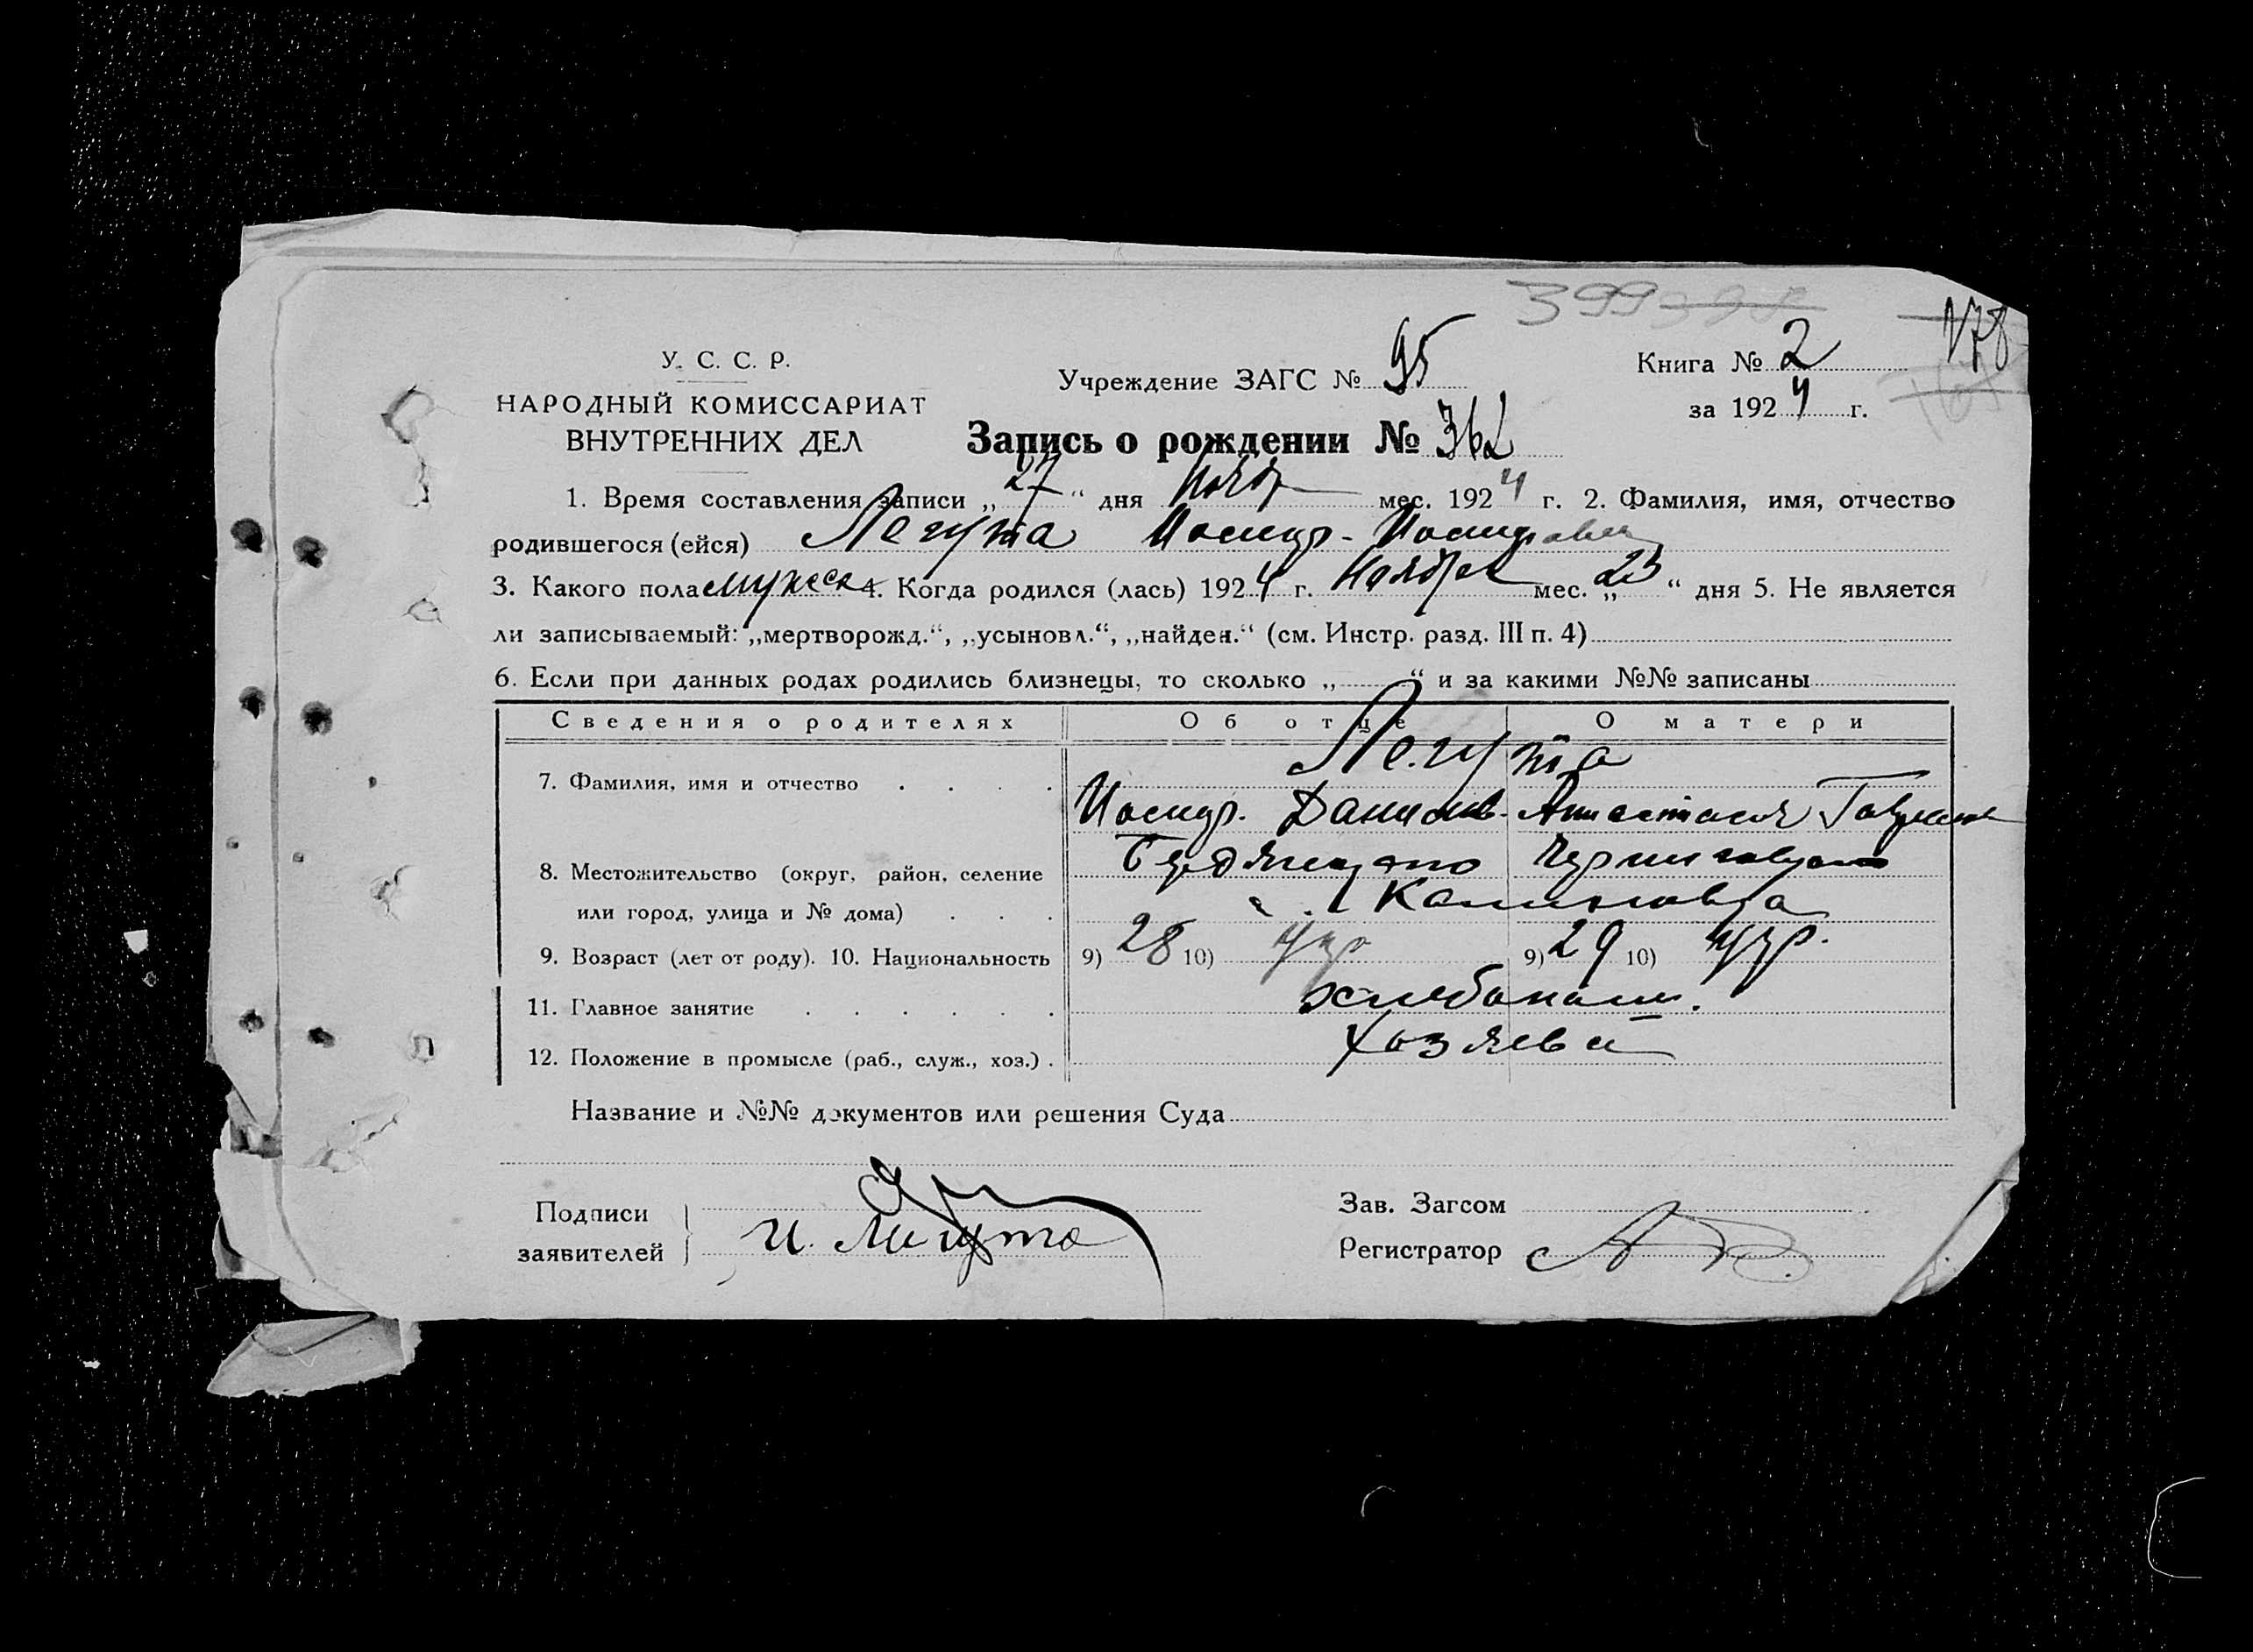 399 398
178
У. С. С. Р.
НАРОДНЫЙ КОМИССАРИАТ
ВНУТРЕННИХ ДЕЛ
Учреждение ЗАГС № 95
Книга № 2
за 1924 г.
Запись о рождении № 362
1. Время составления записи „27“ дня Нояб мес. 1924 г. 2. Фамилия, имя, отчество
родившегося (ейся) Легута Иосиф Иосифович
3. Какого пола мужск 4. Когда родился (лась) 1924 г. Ноября мес. „23“ дня 5. Не является
ли записываемый: „мертворожд.“, „усыновл.“, „найден.“ (см. Инстр. разд. III п. 4)
6. Если при данных родах родились близнецы, то сколько „ “ и за какими №№ записаны
Сведения о родителях Об отце О матери
7. Фамилия, имя и отчество Легута
Иосиф. Данилов. Анастасия Гавриловна
8. Местожительство (округ, район, селение Бердянского Черниговского
или город, улица и № дома) с. Калиновка
9. Возраст (лет от роду). 10. Национальность 9) 28 10) укр 9) 29 10) укр.
11. Главное занятие хлебопаш.
12. Положение в промысле (раб., служ., хоз.) Хозяева
Название и №№ документов или решения Суда
Подписи
заявителей И. Легута
Зав. Загсом
Регистратор